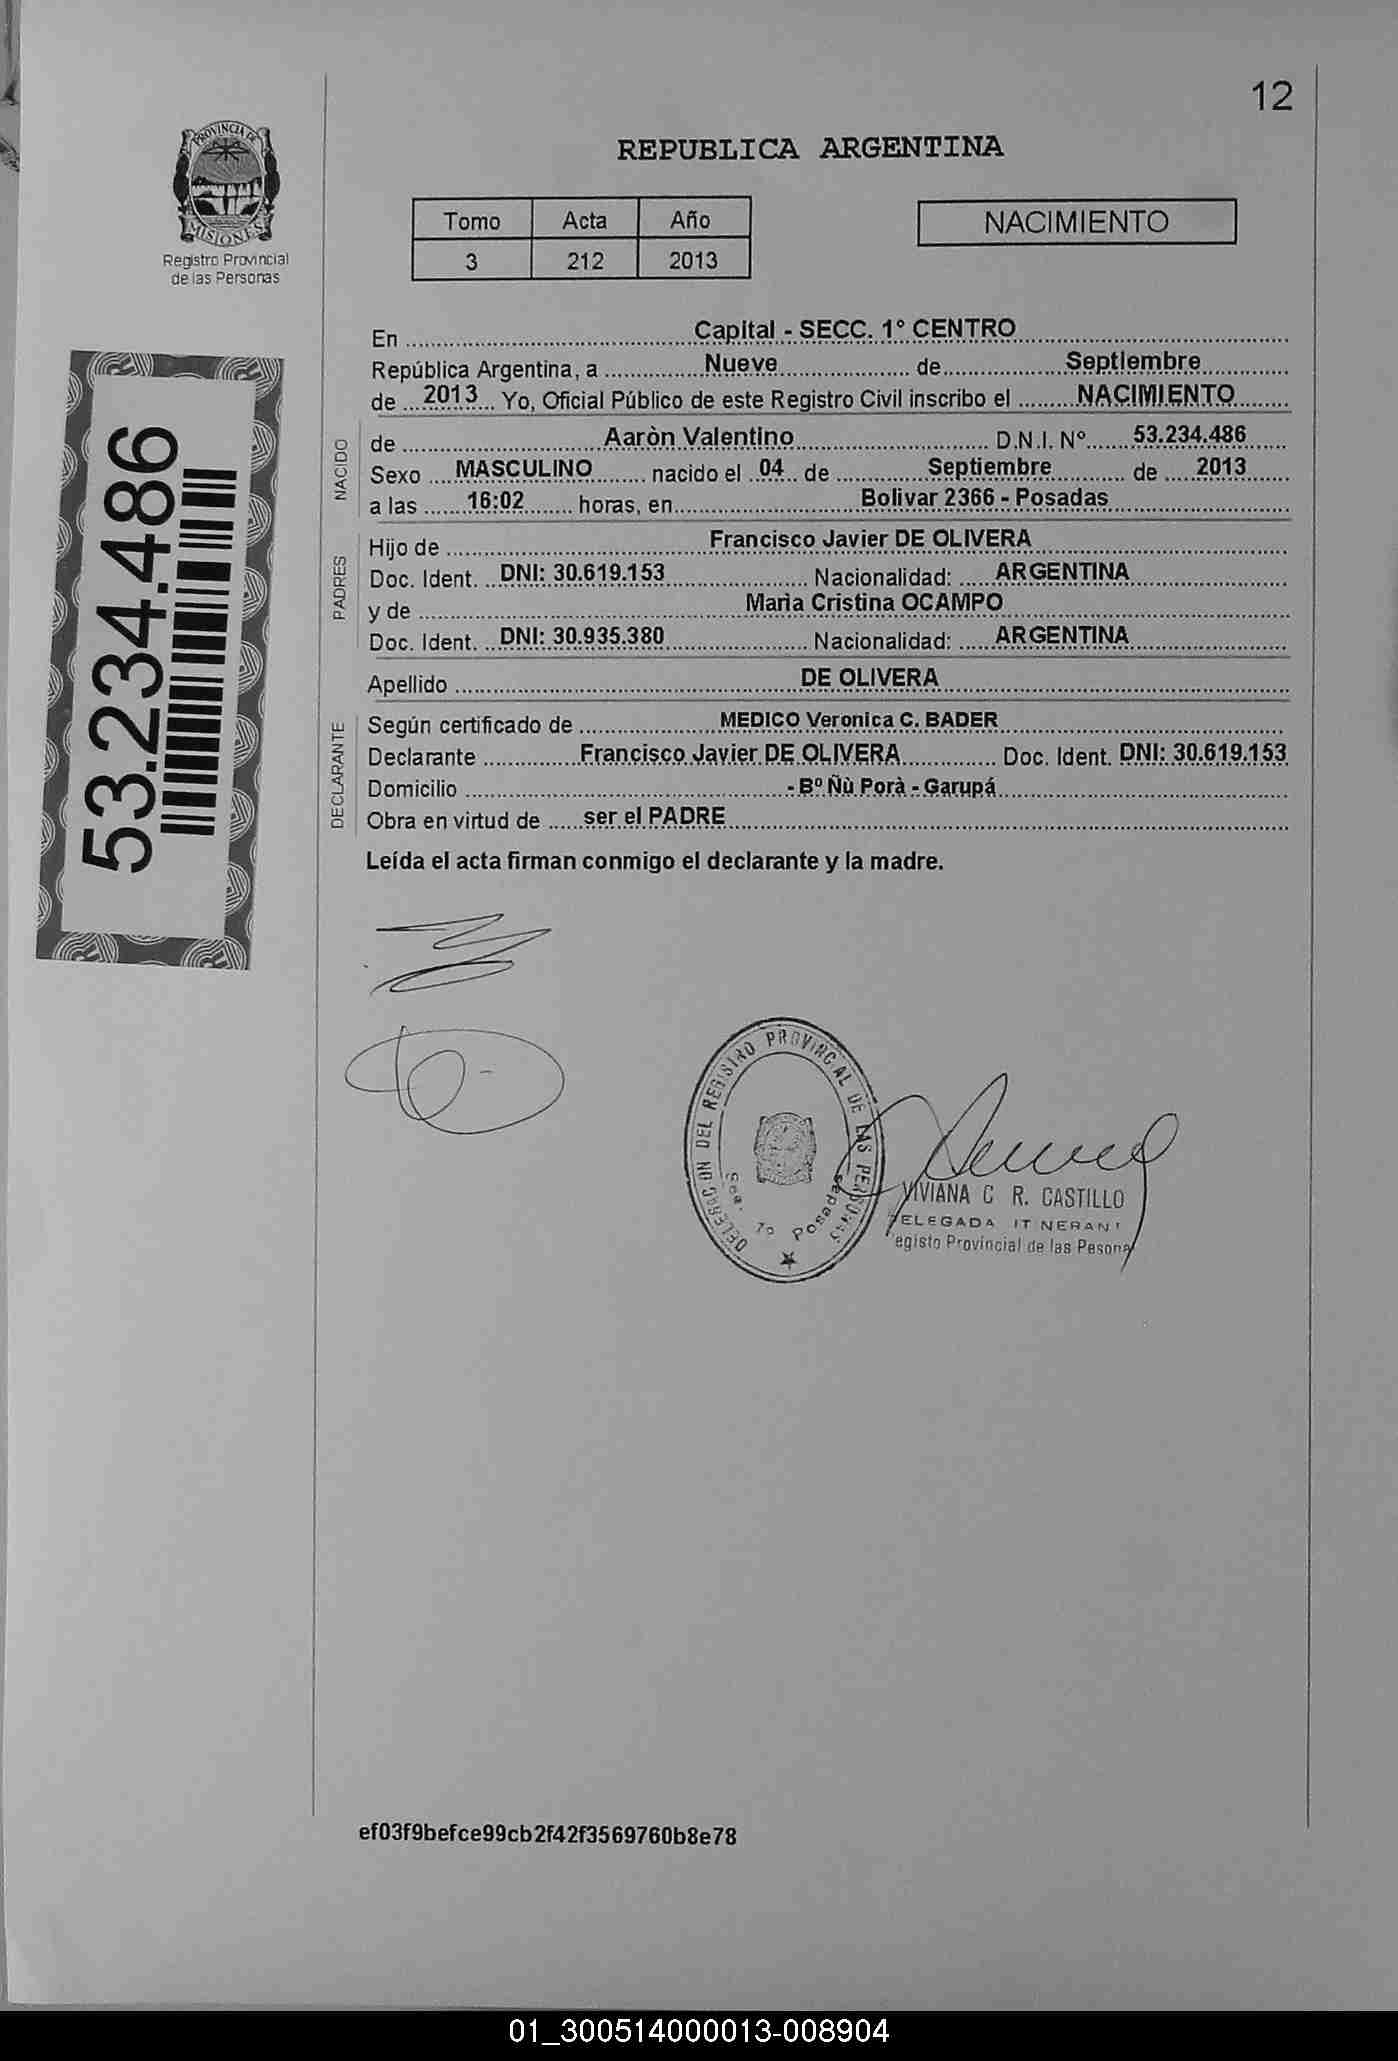 12
PROVINCIA DE
MISIONES
Registro Provincial
de las Personas
REPUBLICA ARGENTINA
Tomo Acta Año
3 212 2013
NACIMIENTO
53.234.486
En Capital - SECC. 1° CENTRO
República Argentina, a Nueve de Septiembre
de 2013 Yo, Oficial Público de este Registro Civil inscribo el NACIMIENTO
NACIDO
de Aaròn Valentino D.N.I. N° 53.234.486
Sexo MASCULINO nacido el 04 de Septiembre de 2013
a las 16:02 horas, en Bolivar 2366 - Posadas
PADRES
Hijo de Francisco Javier DE OLIVERA
Doc. Ident. DNI: 30.619.153 Nacionalidad: ARGENTINA
y de Marìa Cristina OCAMPO
Doc. Ident. DNI: 30.935.380 Nacionalidad: ARGENTINA
Apellido DE OLIVERA
DECLARANTE
Según certificado de MEDICO Veronica C. BADER
Declarante Francisco Javier DE OLIVERA Doc. Ident. DNI: 30.619.153
Domicilio - Bº Ñù Porà - Garupá
Obra en virtud de ser el PADRE
Leída el acta firman conmigo el declarante y la madre.
DELEGACION DEL REGISTRO PROVINCIAL DE LAS PERSONAS
Sec. 1º Posadas
VIVIANA C R. CASTILLO
ELEGADA IT NERANT
egisto Provincial de las Pesona
ef03f9befce99cb2f42f3569760b8e78
01_300514000013-008904